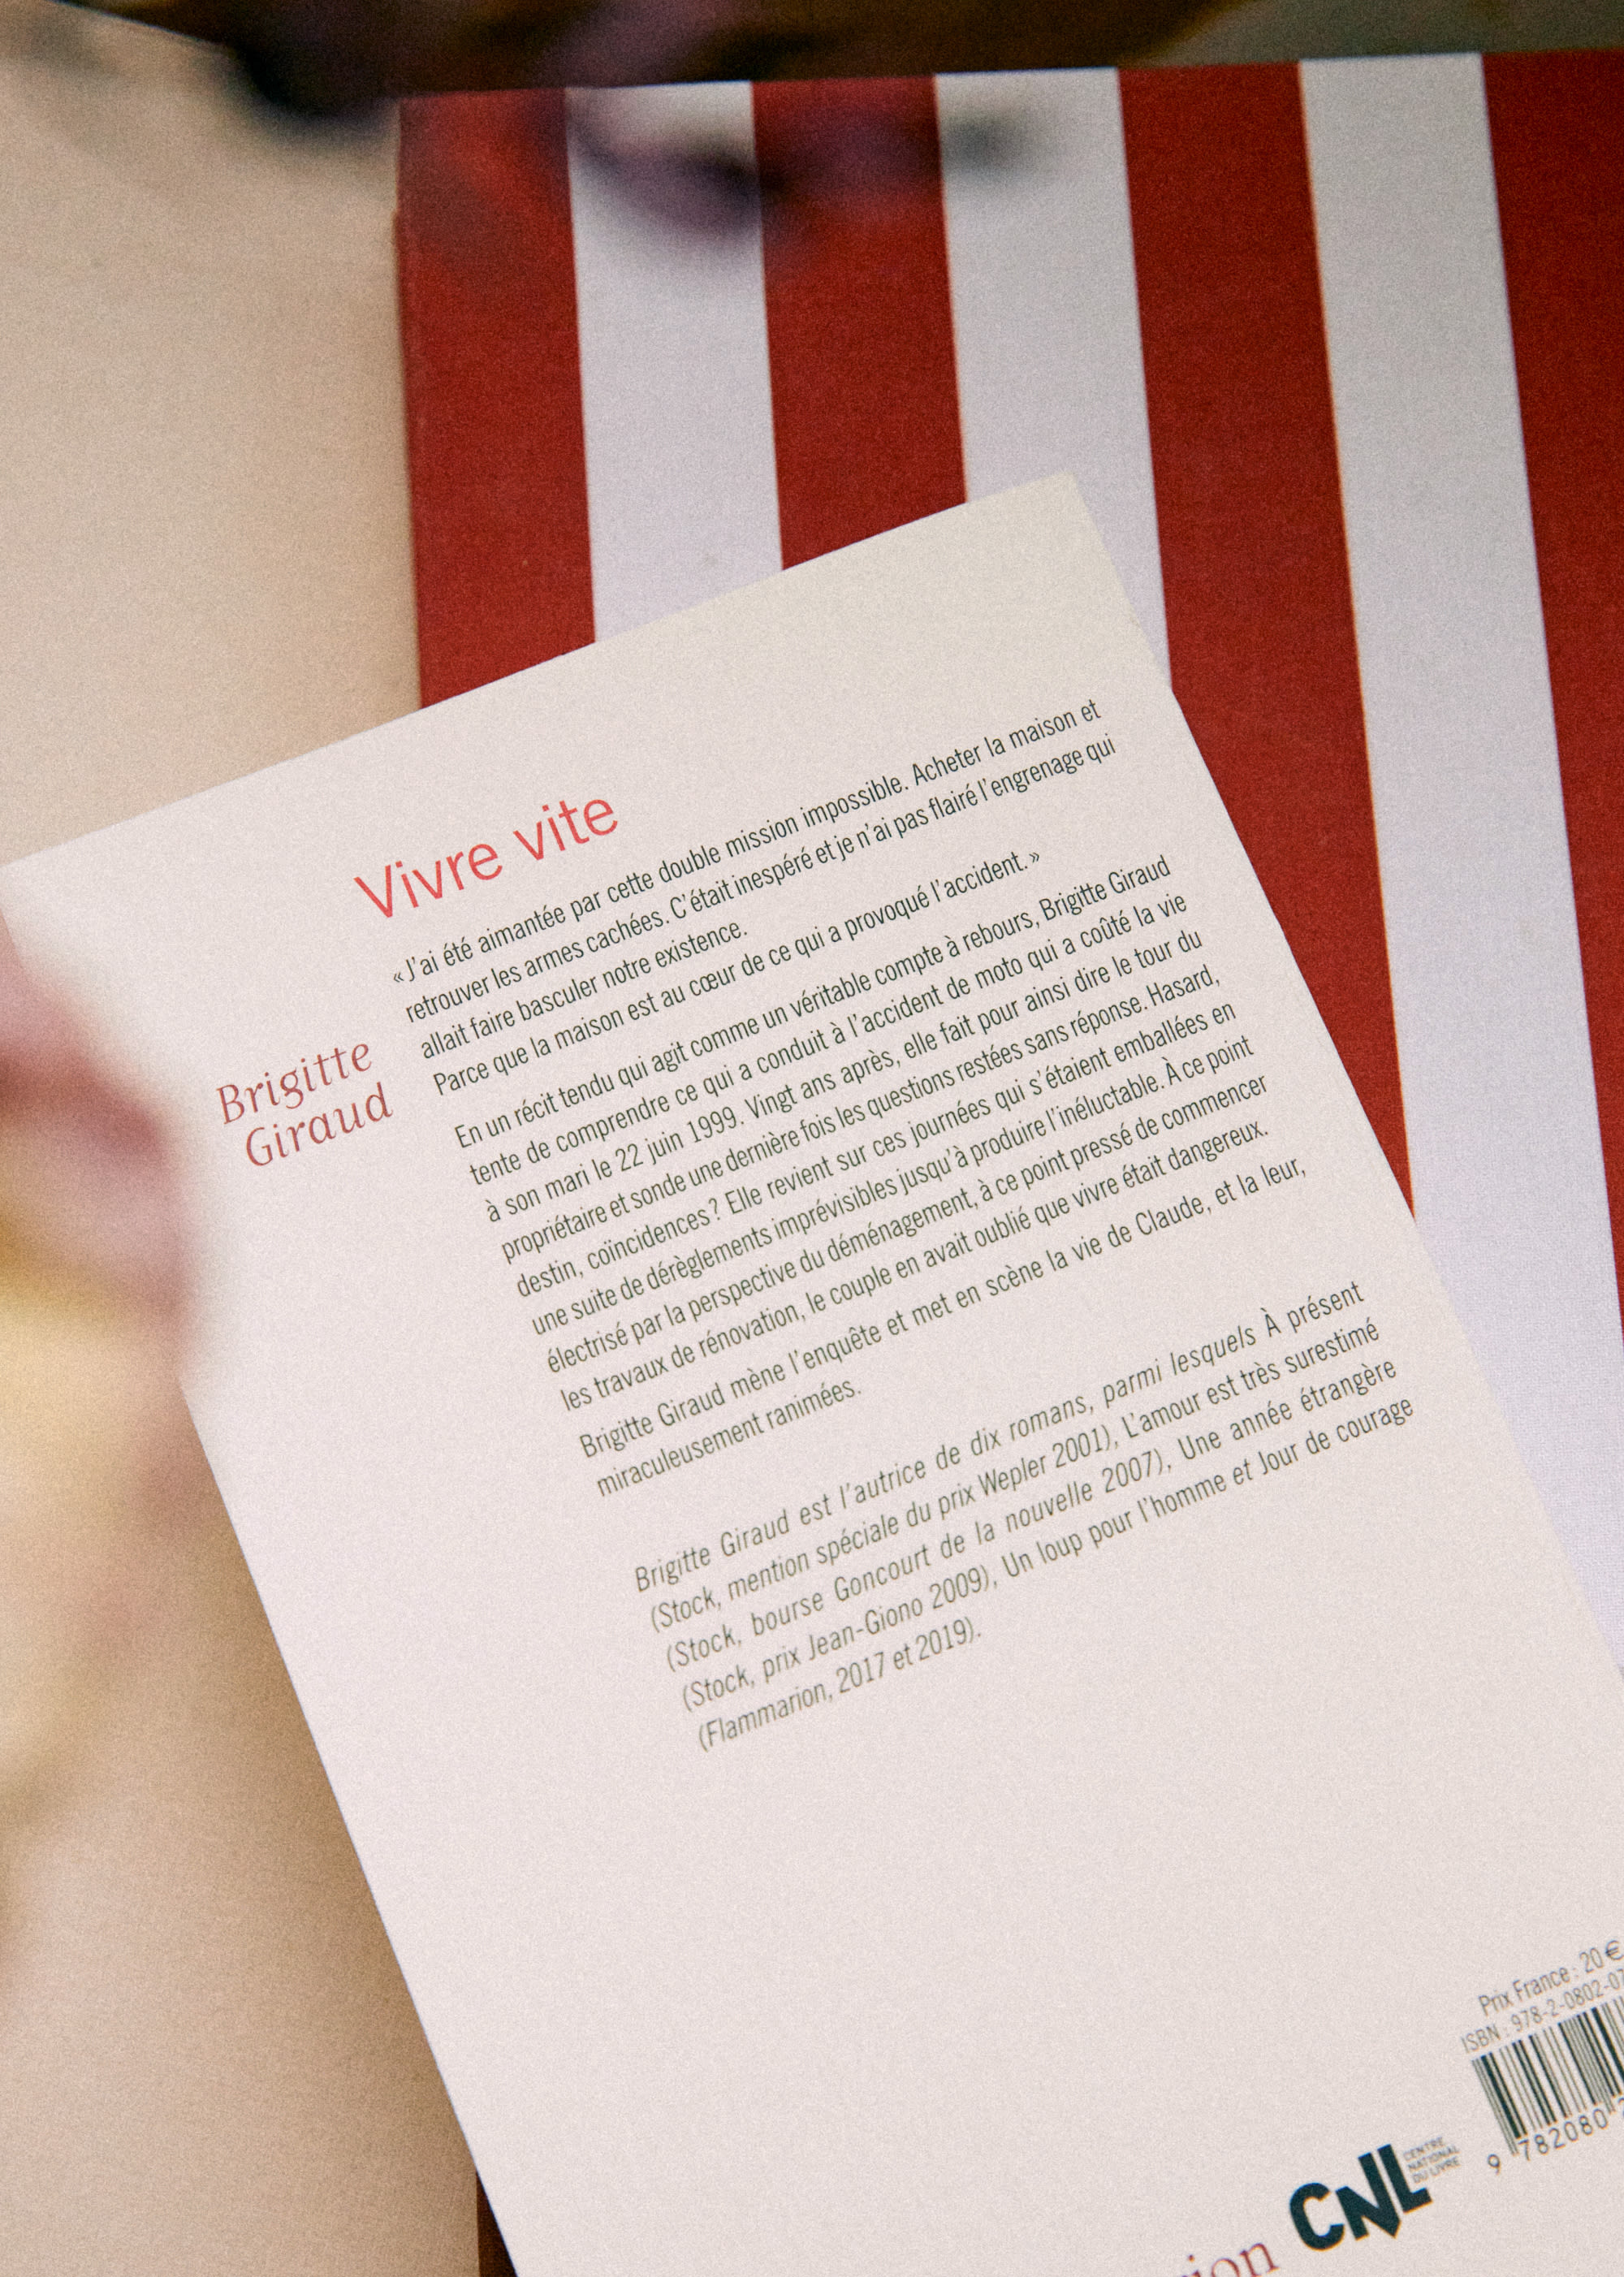 Vivre vite
« J'ai été aimantée par cette double mission impossible. Acheter la maison et
retrouver les armes cachées. C'était inespéré et je n'ai pas flairé l'engrenage qui
allait faire basculer notre existence.
Parce que la maison est au cœur de ce qui a provoqué l'accident. »
Brigitte
Giraud
En un récit tendu qui agit comme un véritable compte à rebours, Brigitte Giraud
tente de comprendre ce qui a conduit à l'accident de moto qui a coûté la vie
à son mari le 22 juin 1999. Vingt ans après, elle fait pour ainsi dire le tour du
propriétaire et sonde une dernière fois les questions restées sans réponse. Hasard,
destin, coïncidences ? Elle revient sur ces journées qui s'étaient emballées en
une suite de dérèglements imprévisibles jusqu'à produire l'inéluctable. À ce point
électrisé par la perspective du déménagement, à ce point pressé de commencer
les travaux de rénovation, le couple en avait oublié que vivre était dangereux.
Brigitte Giraud mène l'enquête et met en scène la vie de Claude, et la leur,
miraculeusement ranimées.
Brigitte Giraud est l'autrice de dix romans, parmi lesquels À présent
(Stock, mention spéciale du prix Wepler 2001), L'amour est très surestimé
(Stock, bourse Goncourt de la nouvelle 2007), Une année étrangère
(Stock, prix Jean-Giono 2009), Un loup pour l'homme et Jour de courage
(Flammarion, 2017 et 2019).
Prix France : 20 €
ISBN : 978-2-0802-07
9 782080
CNL
CENTRE
NATIONAL
DU LIVRE
ion